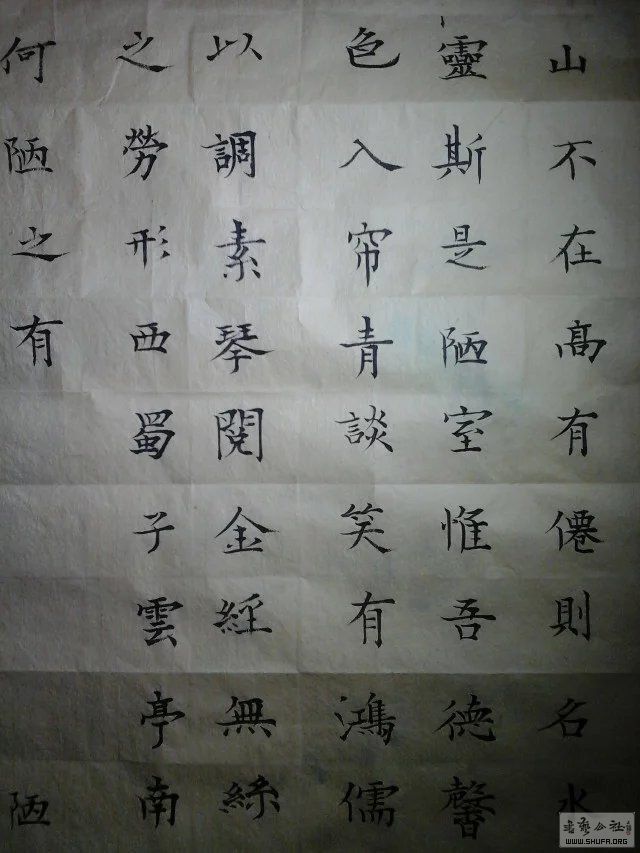 山不在髙有僊則名水
靈斯是陋室惟吾德馨
色入帘青談笑有鴻儒
以調素琴閲金經無絲
之勞形西蜀子雲亭南
何陋之有
陋
書藝公社
WWW.SHUFA.ORG